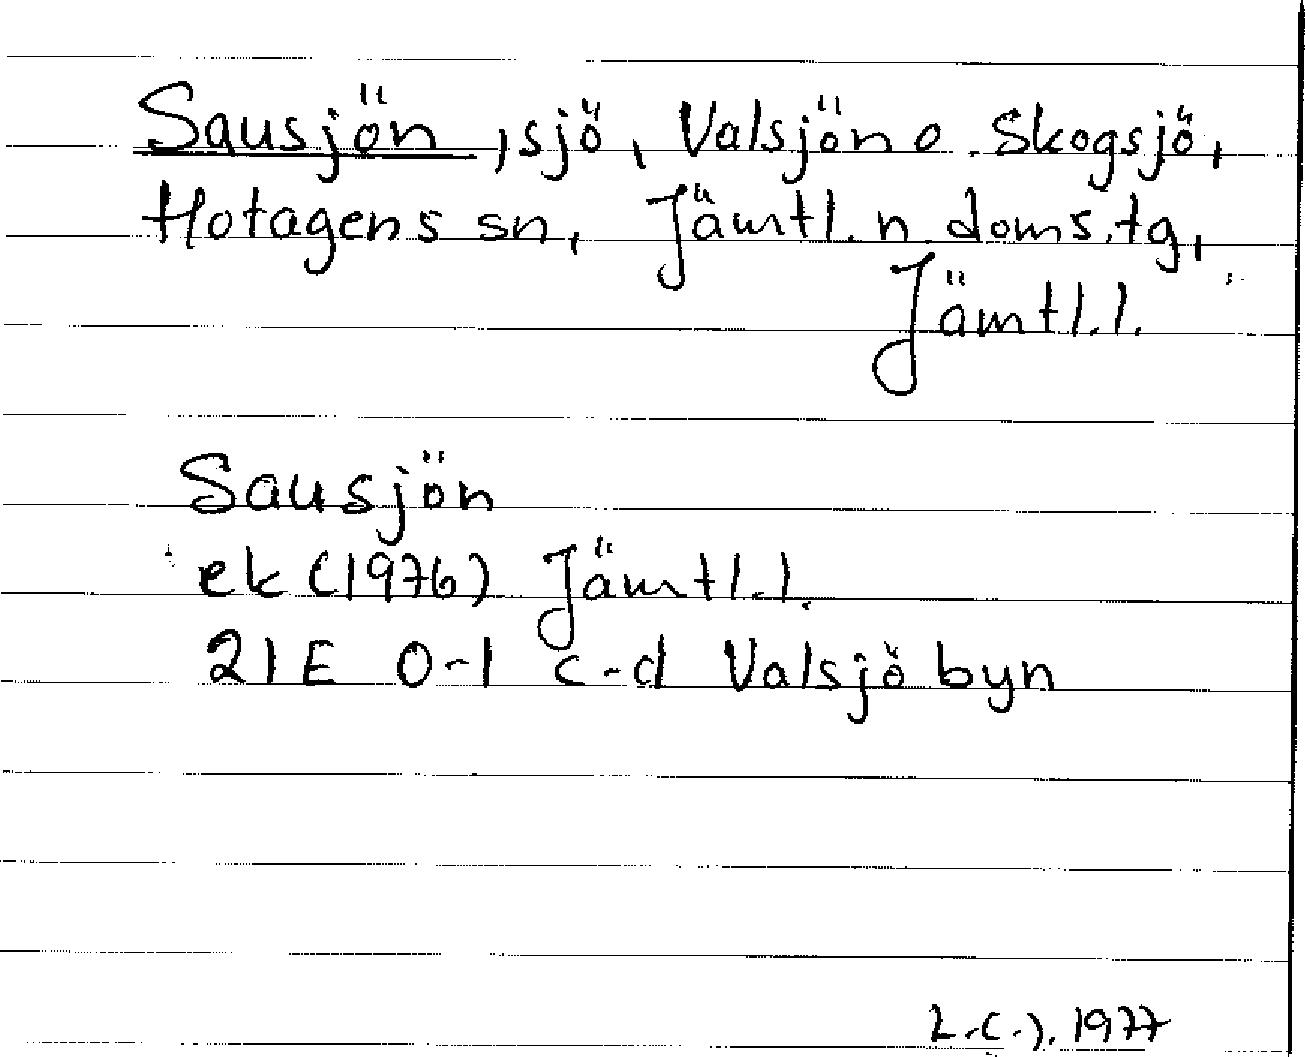 Sausjön, sjö, Valsjön o. Skogsjö,
Hotagens sn, Jämtl. n. doms. tg,
Jämtl. l.
Sausjön
ek (1976) Jämtl. l.
21E 0-1 c-d Valsjöbyn
1977